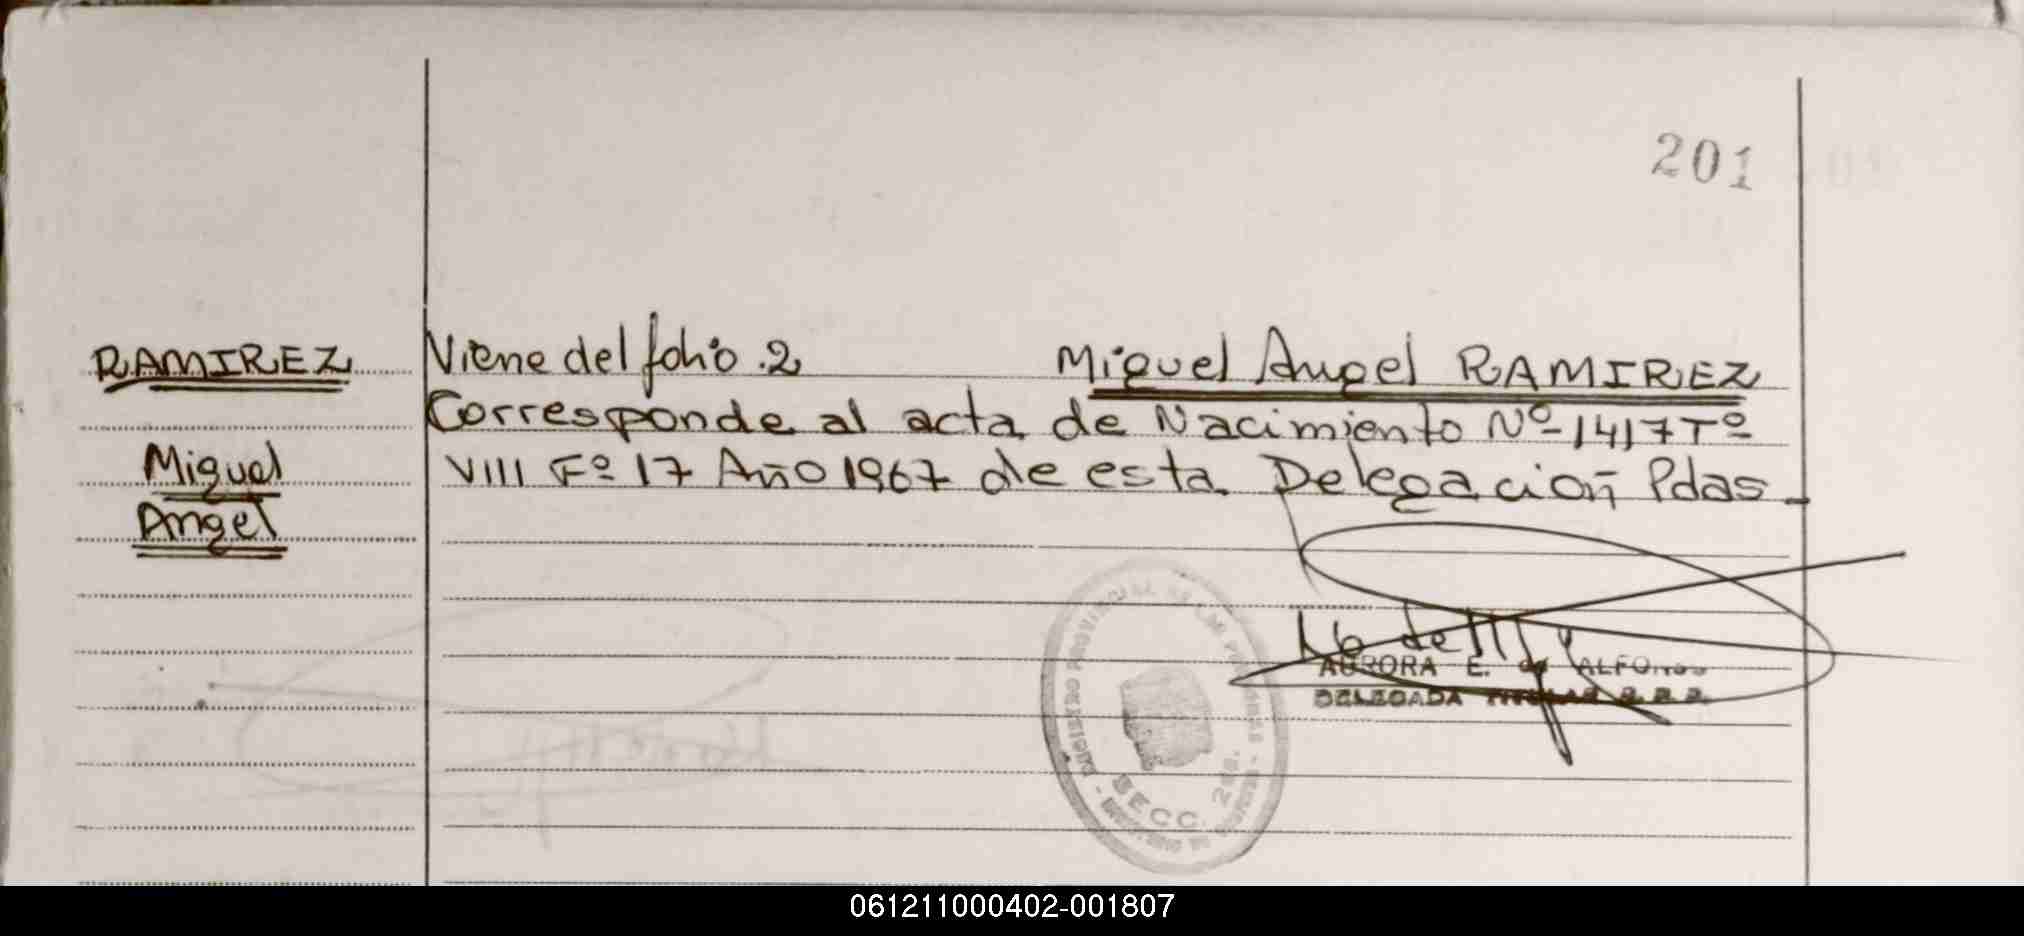 201
RAMIREZ
Miguel
Angel
Viene del folio 2 Miguel Angel RAMIREZ
Corresponde al acta de Nacimiento Nº 1417 Tº
VIII Fº 17 Año 1967 de esta Delegación Pdas
AURORA E. de ALFONSO
DELEGADA TITULAR
SECC.
061211000402-001807